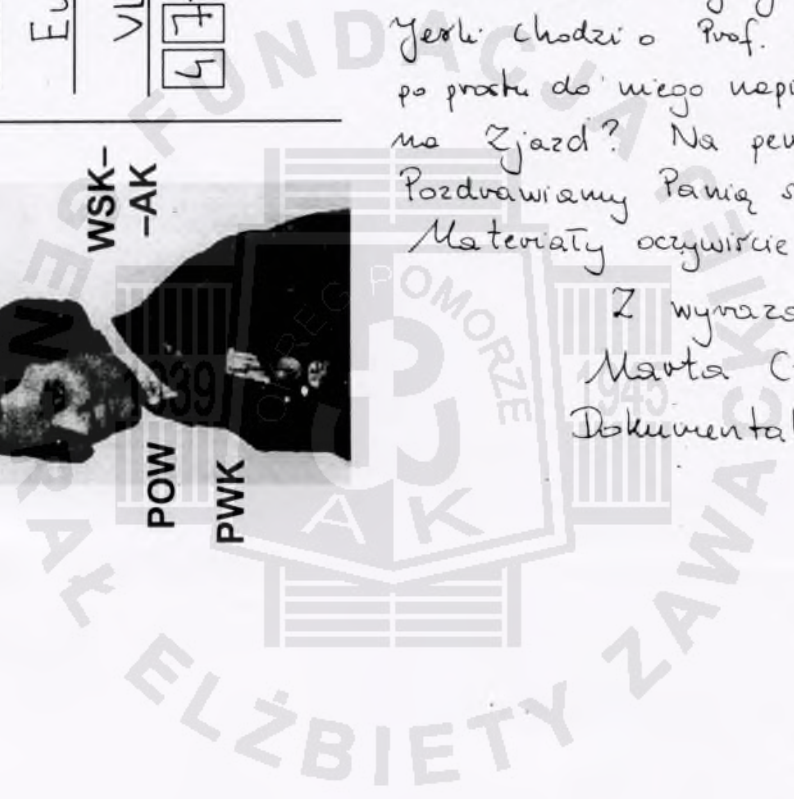 Jeśli chodzi o Prof.
po prostu do niego napi
na Zjazd? Na pew
Pozdrawiamy Panią s
Materiały oczywiście
Z wyraza
Marta C
Dokumental
Eu
VL
4
WSK–
–AK
POW
PWK
FUNDACJA GENERAŁ ELŻBIETY ZAWACKIEJ
OKRĘG POMORZE
1939
1945
AK